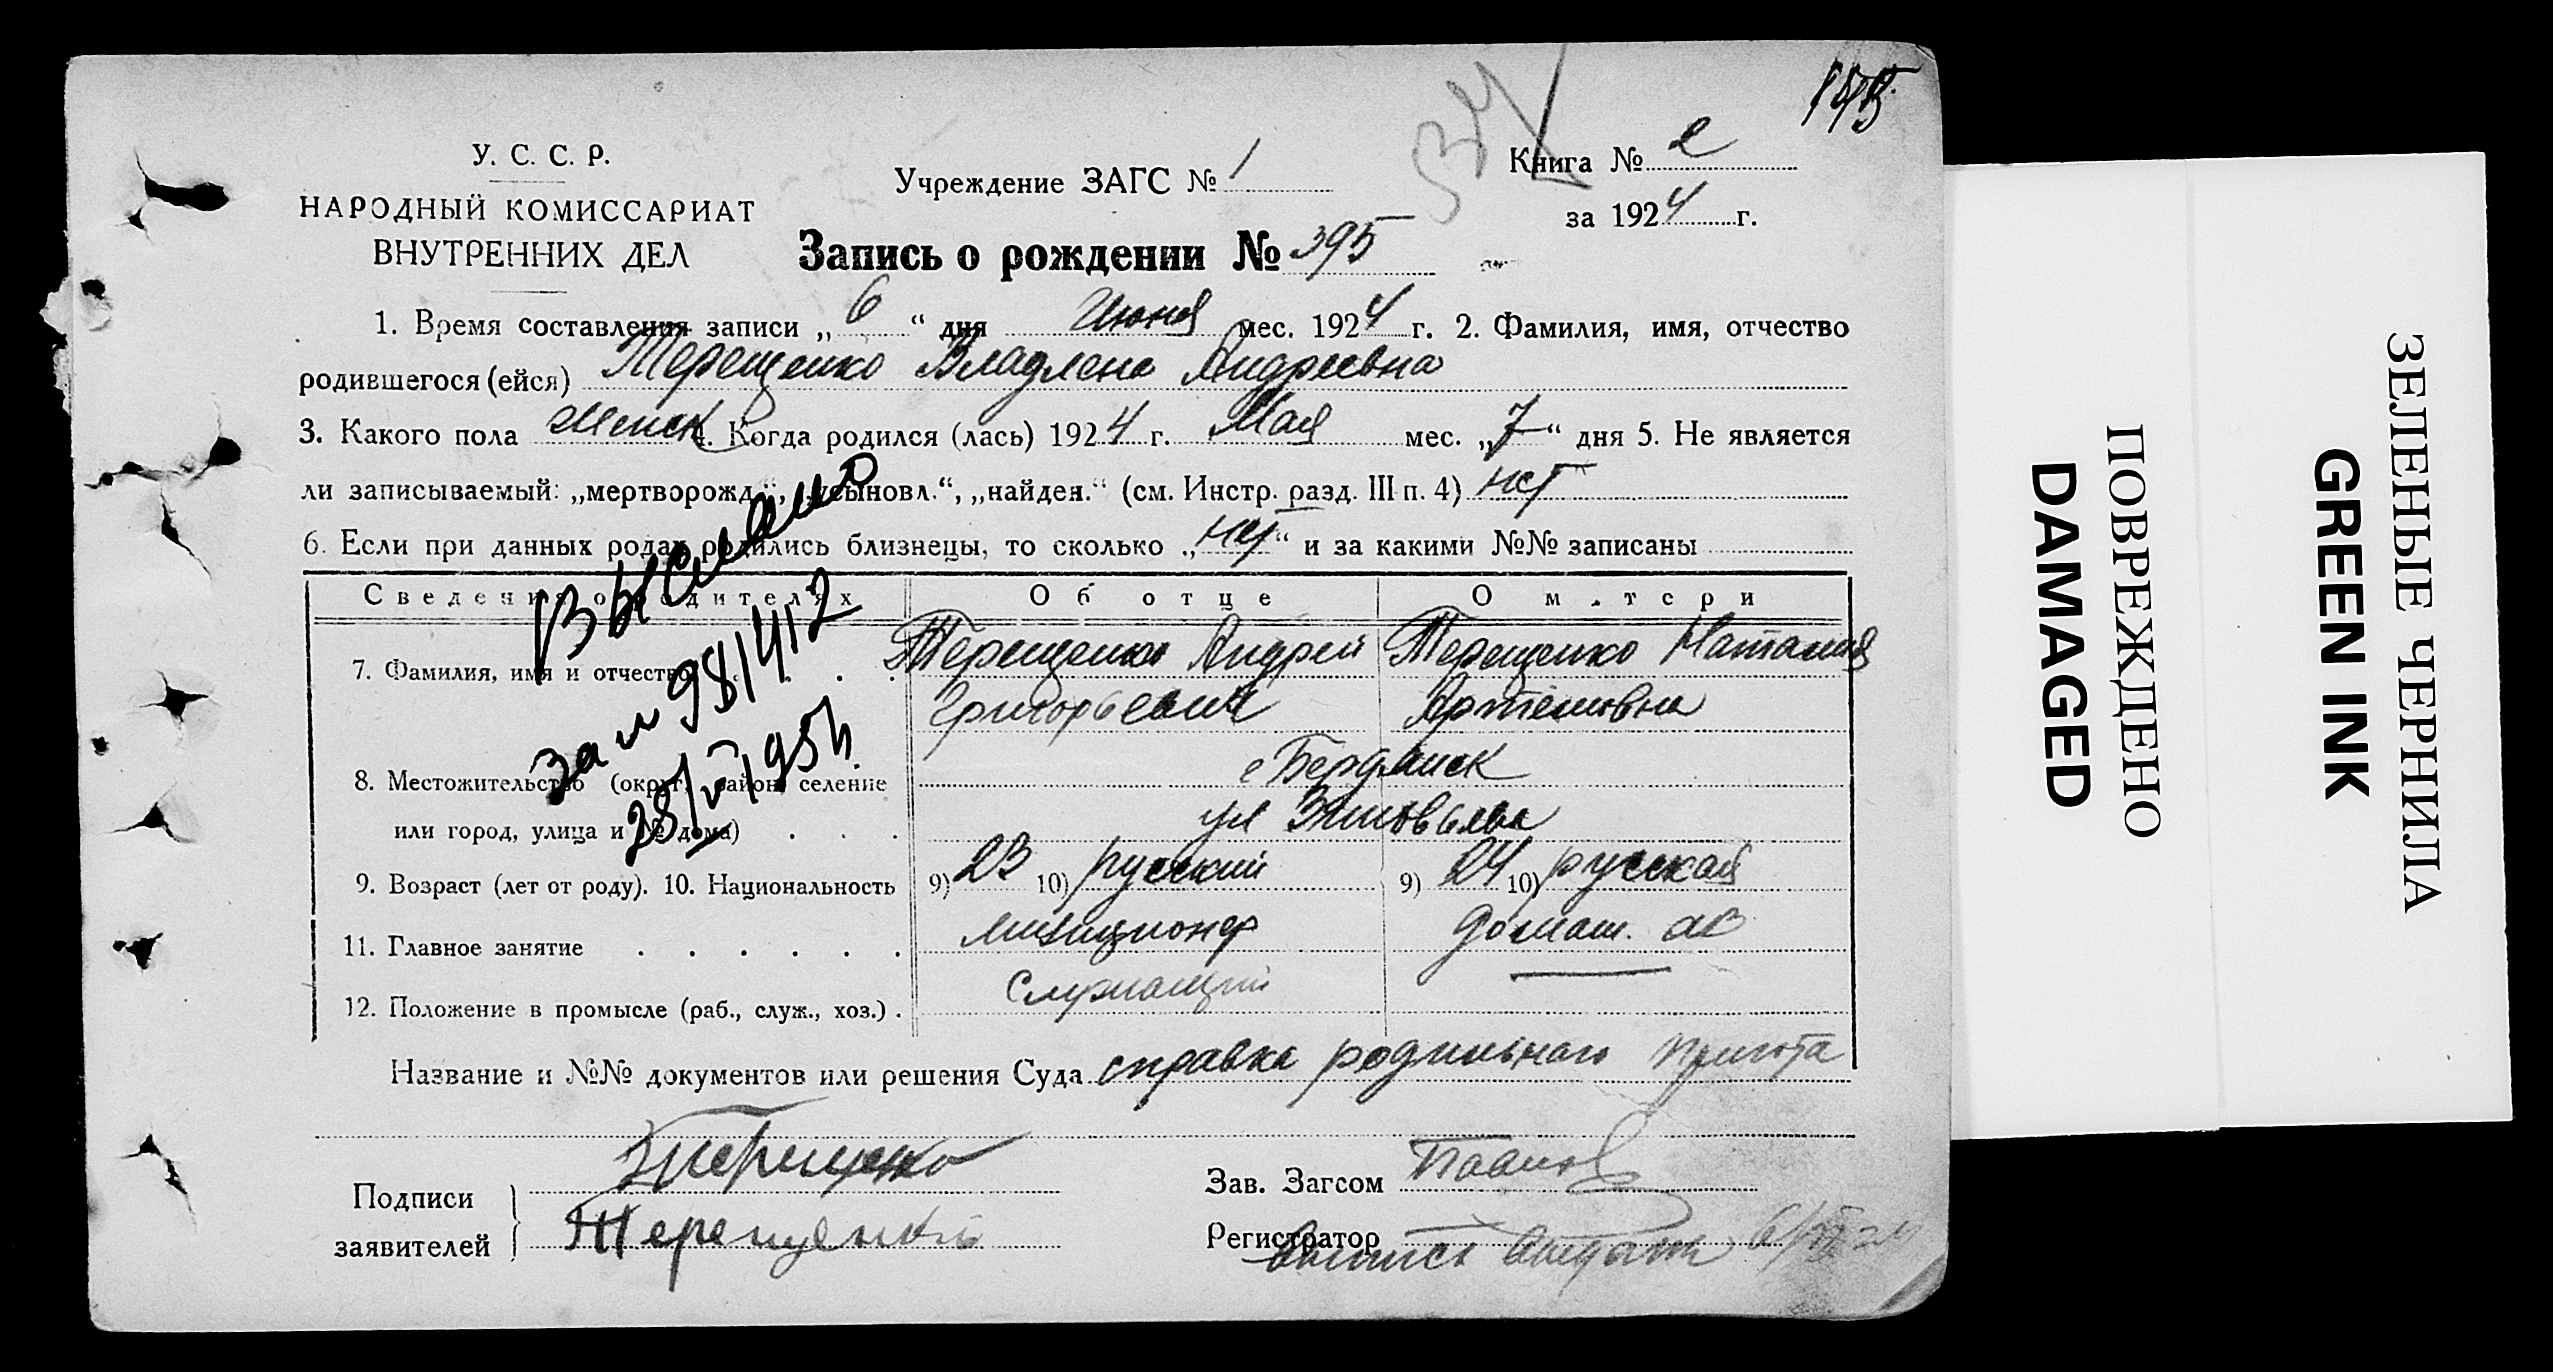 145
У. С. С. Р.
НАРОДНЫЙ КОМИССАРИАТ
ВНУТРЕННИХ ДЕЛ
Учреждение ЗАГС № 1
Книга № 2
за 1924 г.
Запись о рождении № 395
1. Время составления записи „ 6 “ дня Июня мес. 1924 г. 2. Фамилия, имя, отчество
родившегося (ейся) Терещенко Владлена Андреевна
3. Какого пола женск 4. Когда родился (лась) 1924 г. Мая мес. „ 7 “ дня 5. Не является
ли записываемый: „мертворожд.“, „усыновл.“, „найден.“ (см. Инстр. разд. III п. 4) нет
6. Если при данных родах родились близнецы, то сколько „ нет “ и за какими №№ записаны
Сведения о родителях Об отце О матери
7. Фамилия, имя и отчество Терещенко Андрей Терещенко Наталия
Григорьевич Артемовна
8. Местожительство (округ, район, селение г Бердянск
или город, улица и № дома) ул Зиновьева
9. Возраст (лет от роду). 10. Национальность 9) 23 10) русский 9) 24 10) русская
11. Главное занятие милиционер домаш.
12. Положение в промысле (раб., служ., хоз.) служащий
Название и №№ документов или решения Суда справка родильного приюта
Подписи
заявителей
Терещенко
Терещенко
Зав. Загсом
Регистратор
Выслано
за № 981412
28/VI 1954
ПОВРЕЖДЕНО
DAMAGED
ЗЕЛЕНЫЕ ЧЕРНИЛА
GREEN INK